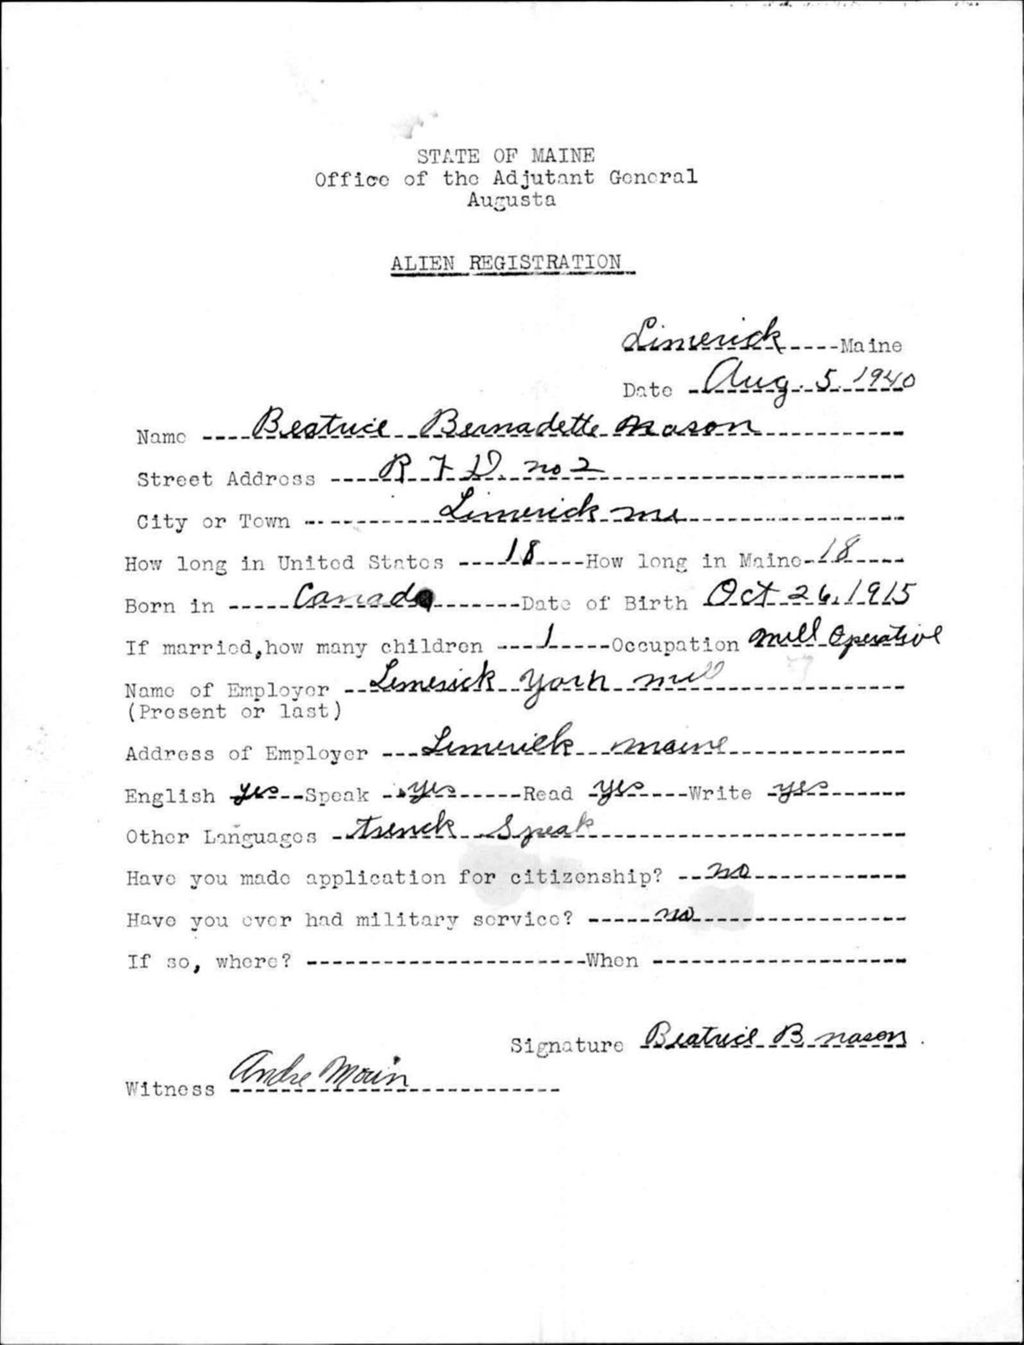 STATE OF MAINE
Office of the Adjutant General
Augusta
ALIEN REGISTRATION
Limerick Maine
Date Aug. 5. 1940
Name Beatrice Bernadette Mason
Street Address R. F. D. no 2
City or Town Limerick Me
How long in United States 18 How long in Maine 18
Born in Canada Date of Birth Oct 26, 1915
If married, how many children 1 Occupation Mill Operative
Name of Employer Limerick Yarn Mill
(Present or last)
Address of Employer Limerick Maine
English yes Speak yes Read yes Write yes
Other Languages French Speak
Have you made application for citizenship? no
Have you ever had military service? no
If so, where? When
Signature Beatrice B Mason
Witness Andre Morin